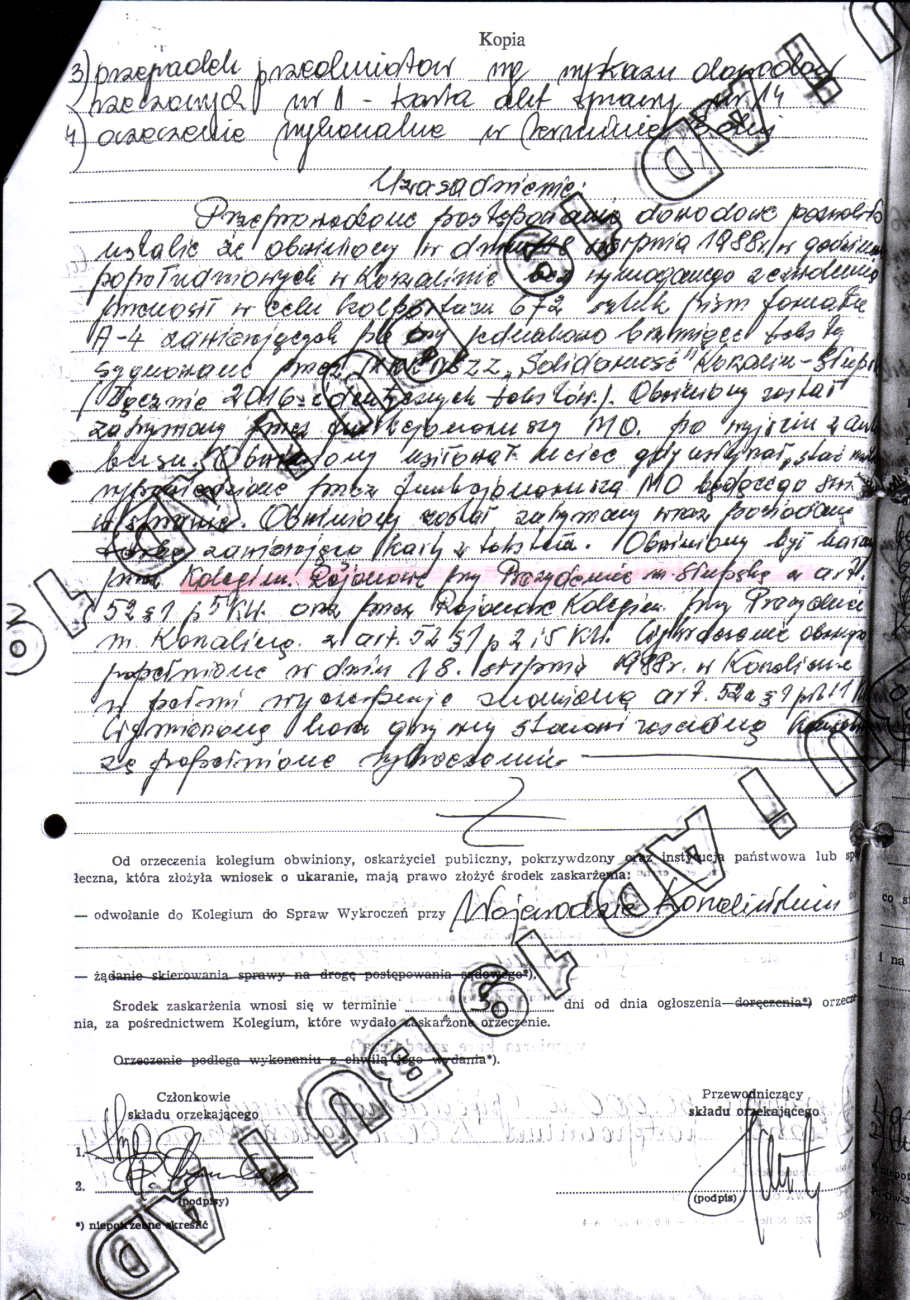 Kopia
3) przepadek przedmiotów wg wykazu dowodów
rzeczowych nr 1 - karta akt sprawy nr 14
4) orzeczenie wykonalne w terminie dni
Uzasadnienie:
Przeprowadzone postępowanie dowodowe pozwoliło
ustalić że obwiniony w dniu sierpnia 1988r. w godzinach
popołudniowych w Koszalinie bez wymaganego zezwolenia
przenosił w celu kolportażu 672 sztuk pism formatu
A-4 zawierających po trzy jednakowo brzmiące teksty
sygnowane przez NSZZ „Solidarność" Koszalin-Słupsk
(Łącznie 2016 identycznych tekstów.) Obwiniony został
zatrzymany przez funkcjonariuszy MO. po wyjściu z auto
busu. Obwiniony usiłował uciec gdy usłyszał „stać
wypowiedziane przez funkcjonariusza MO będącego
Obwiniony został zatrzymany wraz posiadaną
torbą zawierającą karty z tekstem. Obwiniony był karany
przez Kolegium Rejonowe przy Prezydencie m. Słupska z art.
52 § 1 p 5 KW. oraz przez Rejonowe Kolegium przy Prezydencie
m. Koszalina z art. 52 § 1 p 2 i 5 KW.
popełnione w dniu 18. sierpnia 1988r. w Koszalinie
w pełni wyczerpuje znamiona art. 52a § 1 pkt
Wymierzona kara grzywny stanowi zasadną
za popełnione wykroczenie.
Od orzeczenia kolegium obwiniony, oskarżyciel publiczny, pokrzywdzony oraz instytucja państwowa lub spo
łeczna, która złożyła wniosek o ukaranie, mają prawo złożyć środek zaskarżenia:
— odwołanie do Kolegium do Spraw Wykroczeń przy Wojewodzie Koszalińskim
— żądanie skierowania sprawy na drogę postępowania sądowego*).
Środek zaskarżenia wnosi się w terminie dni od dnia ogłoszenia—doręczenia*) orzecze
nia, za pośrednictwem Kolegium, które wydało zaskarżone orzeczenie.
Orzeczenie podlega wykonaniu z chwilą jego wydania*).
Członkowie
składu orzekającego
Przewodniczący
składu orzekającego
1.
2.
(podpisy)
(podpis)
*) niepotrzebne skreślić